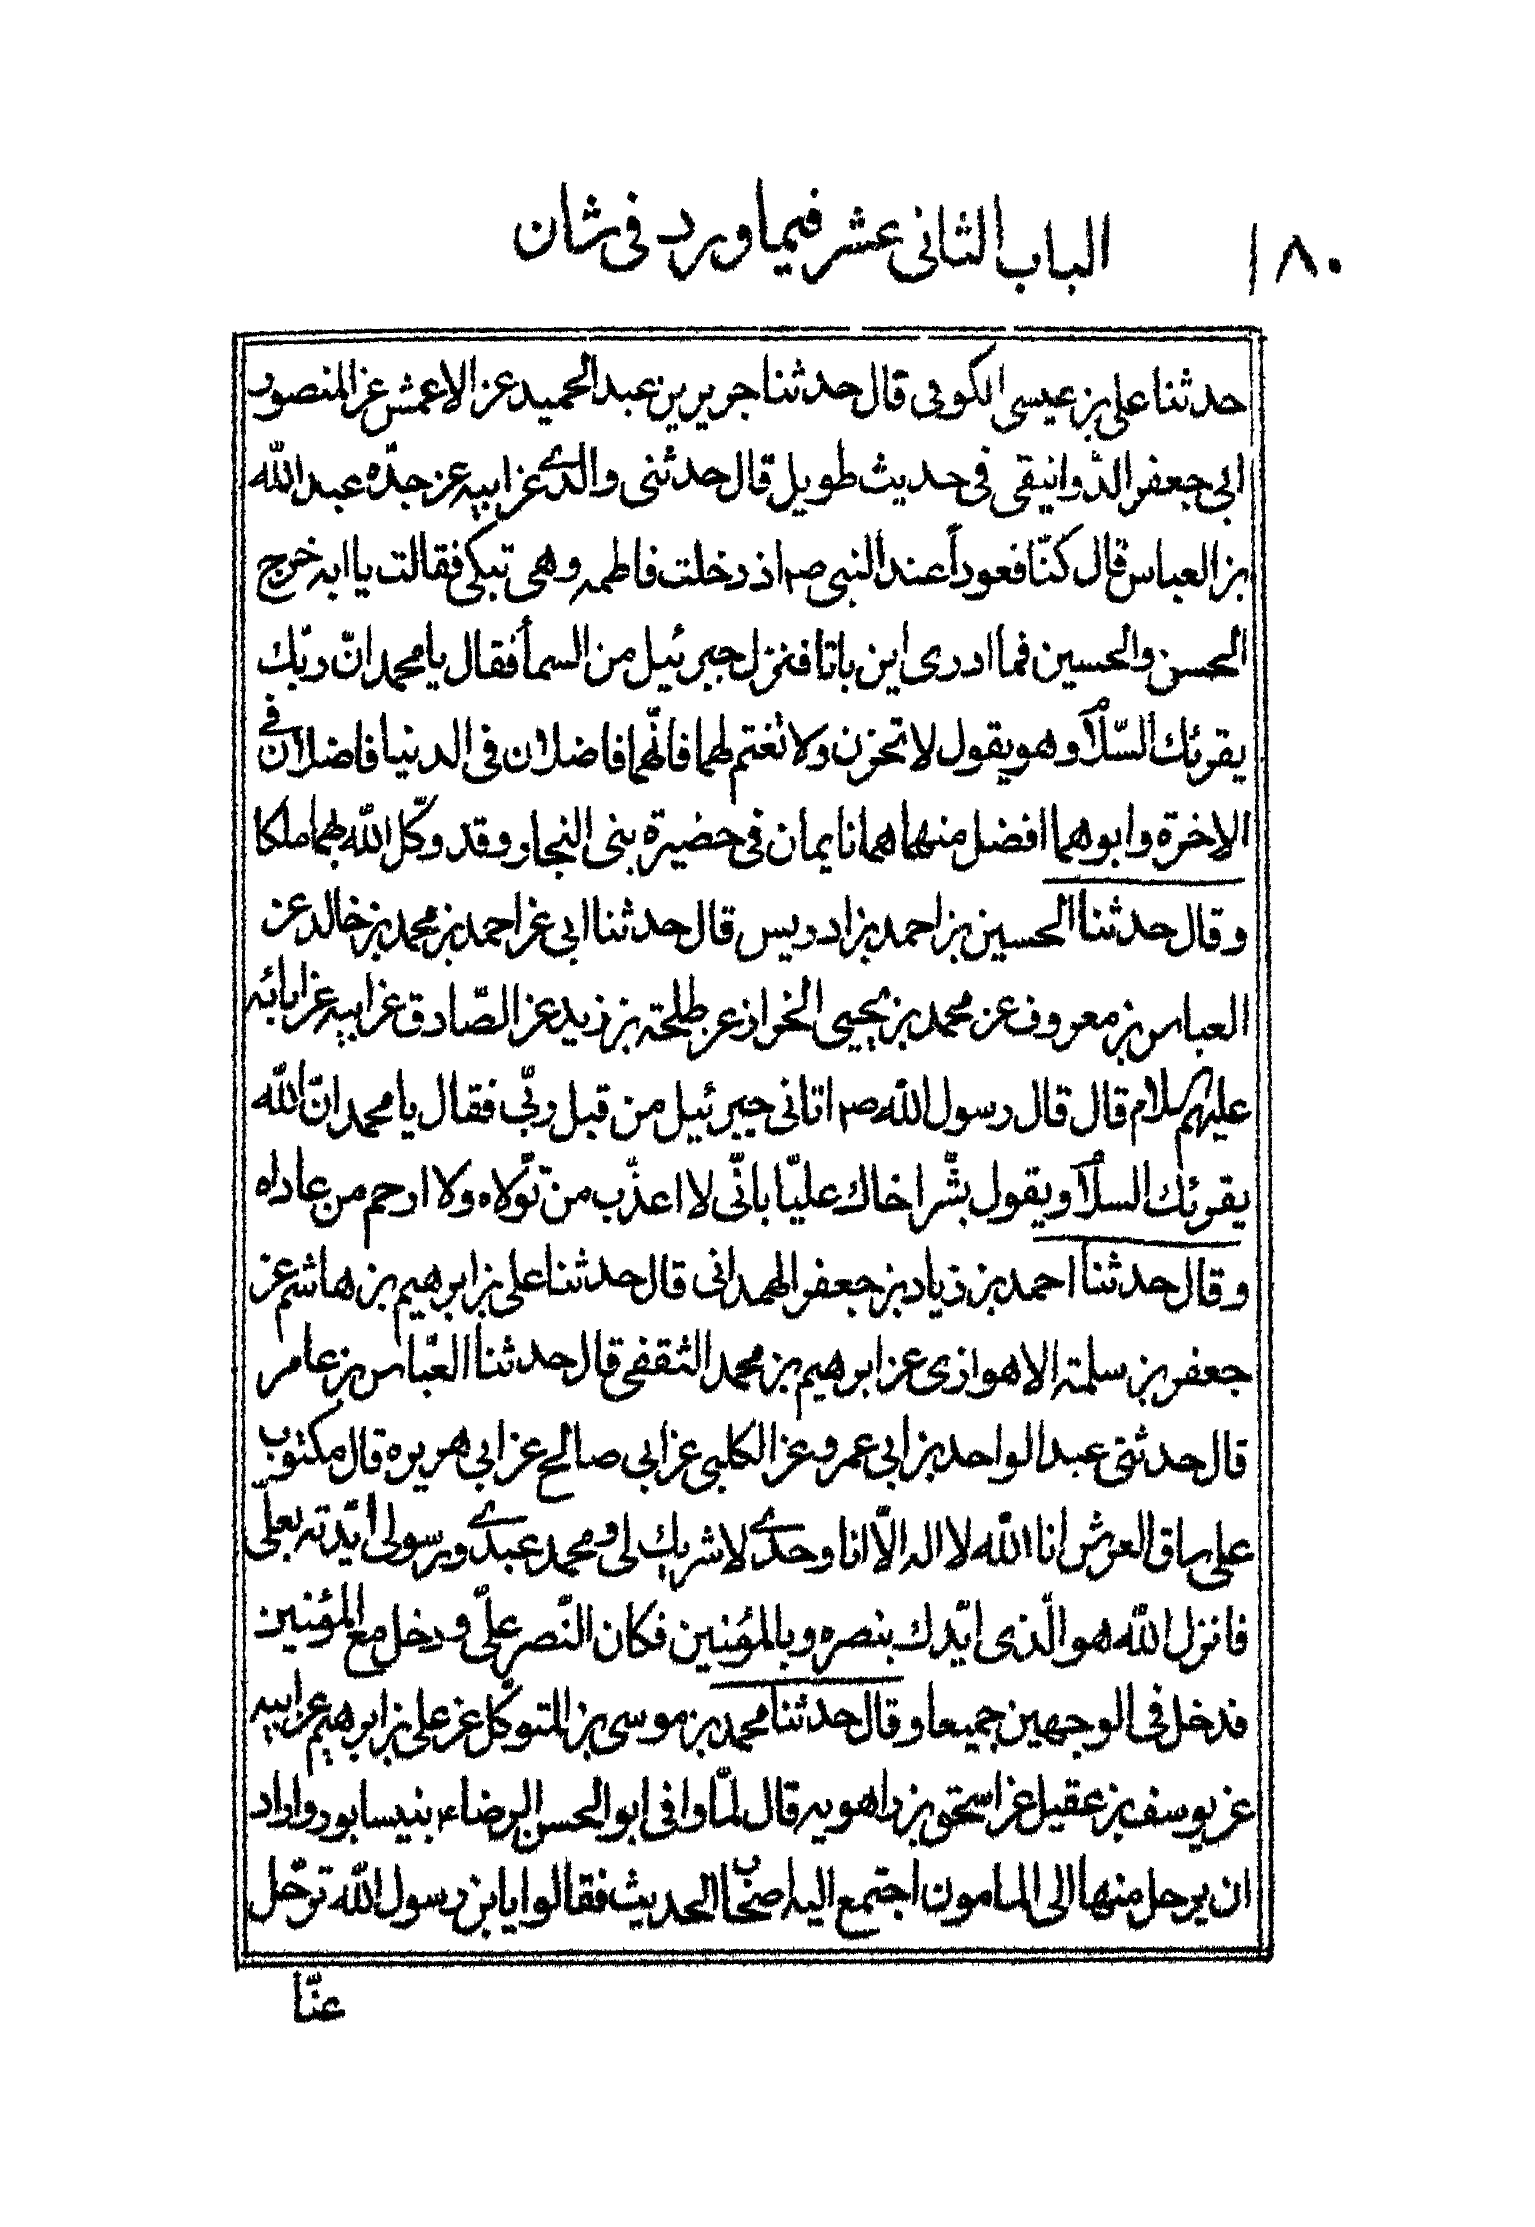 ١٨٠
الباب الثانی عشر فیما ورد فی شان
حدثنا علی بن عیسی الکوفی قال حدثنا جریر بن عبد الحمید عن الاعمش عن المنصور
ابی جعفر الدّوانیقی فی حدیث طویل قال حدثنی والدی عن ابیه عن جدّه عبد الله
بن العباس قال کنّا قعوداً عند النبی ص اذ دخلت فاطمه و هی تبکی فقالت یا ابه خرج
الحسن والحسین فما ادری این باتا فنزل جبرئیل من السمأ فقال یا محمد انّ ربّک
یقرئک السّلام و هو یقول لا تحزن ولا تغتم لهما فانّهما فاضلان فی الدنیا فاضلان فی
الاخرة وابوهما افضل منهما هما نایمان فی حضیرة بنی النجار و قد وکّل الله بهما ملکا
و قال حدثنا الحسین بن احمد بن ادریس قال حدثنا ابی عن احمد بن محمد بن خالد عن
العباس بن معروف عن محمد بن یحیی الخزاز عن طلحة بن زید عن الصّادق عن ابیه عن ابائه
علیهم السلام قال قال رسول الله ص اتانی جبرئیل من قبل ربّی فقال یا محمد انّ الله
یقرئک السلام و یقول بشّر اخاک علیّا بانّی لا اعذّب من تولّاه ولا ارحم من عاداه
و قال حدثنا احمد بن زیاد بن جعفر الهمدانی قال حدثنا علی بن ابرهیم بن هاشم عن
جعفر بن سلمة الاهوازی عن ابرهیم بن محمد الثقفی قال حدثنا العبّاس بن عامر
قال حدثنی عبد الواحد بن ابی عمرو عن الکلبی عن ابی صالح عن ابی هریره قال مکتوب
علی ساق العرش انا الله لا اله الّا انا وحدی لا شریک لی و محمد عبدی و رسولی ایّدته بعلی
فانزل الله هو الّذی ایّدک بنصره و بالمؤمنین فکان النّصر علیّ و دخل مع المؤمنین
فدخل فی الوجهین جمیعا و قال حدثنا محمد بن موسی بن المتوکّل عن علی بن ابرهیم عن ابیه
عن یوسف بن عقیل عن اسحق بن راهویه قال لمّا وافی ابو الحسن الرضاء ع بنیسابور و اراد
ان یرحل منها الی المامون اجتمع الیه اصحاب الحدیث فقالوا یابن رسول الله ترحّل
عنّا